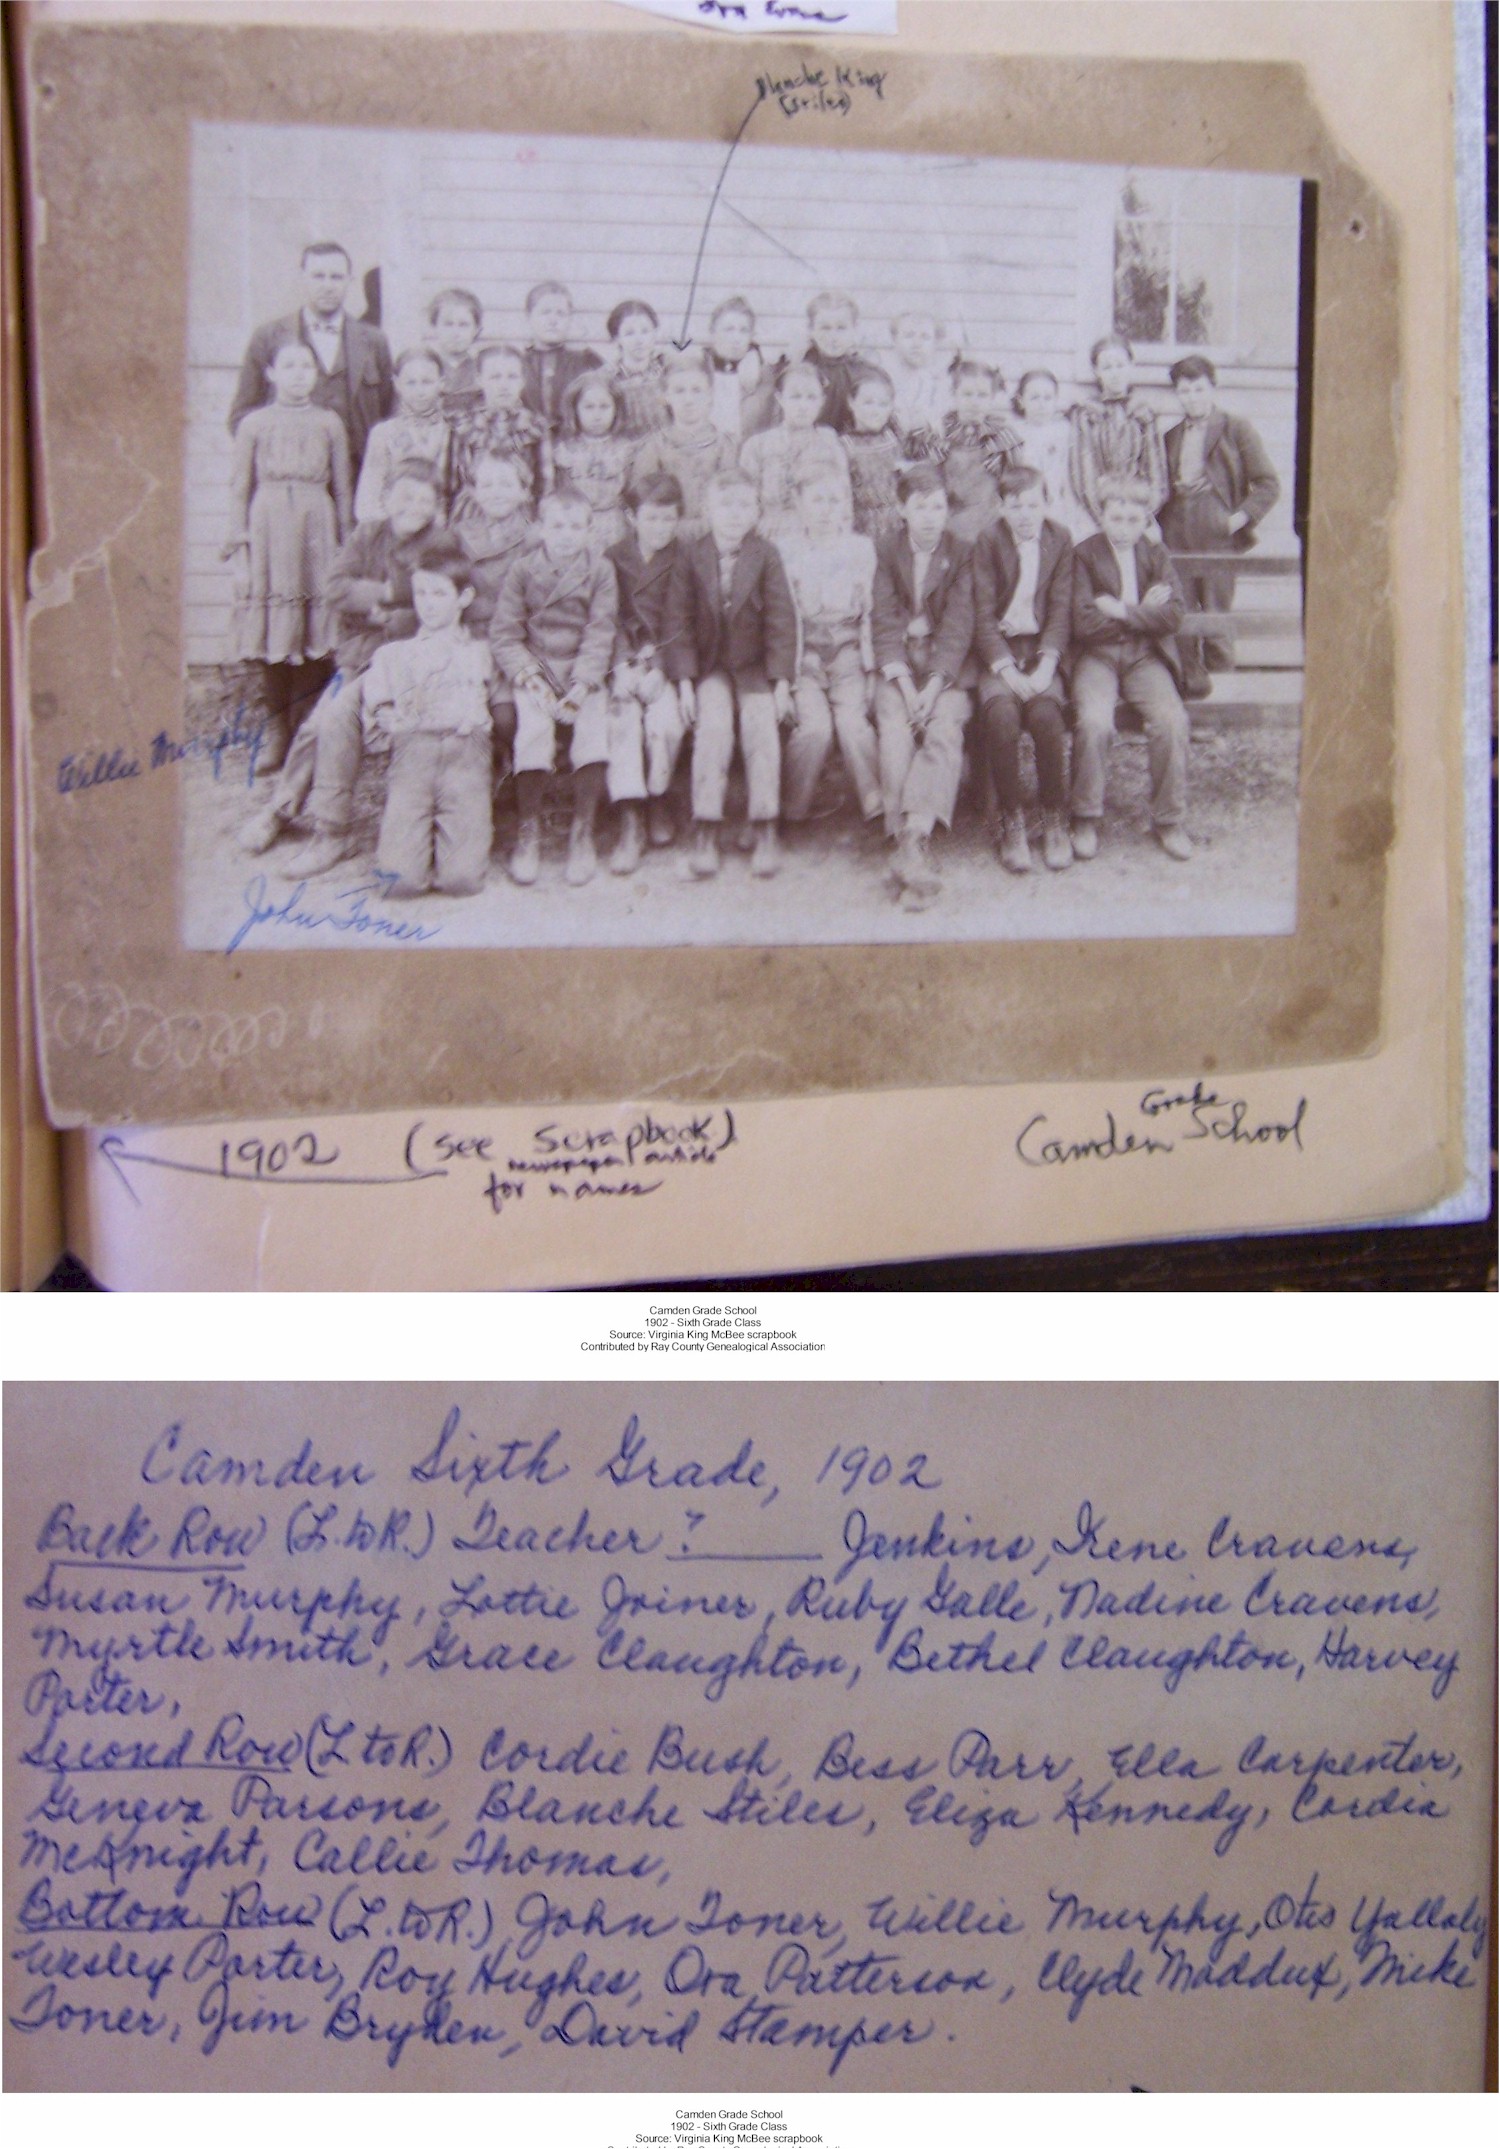 Ora Evans
Blanche King
(Stiles)
Willie Murphy
John Toner
1902 (see Scrapbook)
newspaper article
for names
Grade
Camden School
Camden Grade School
1902 - Sixth Grade Class
Source: Virginia King McBee scrapbook
Contributed by Ray County Genealogical Association
Camden Sixth Grade, 1902
Back Row (L. to R.) Teacher ? Jenkins, Irene Cravens,
Susan Murphy, Lottie Joiner, Ruby Galle, Nadine Cravens,
Myrtle Smith, Grace Claughton, Bethel Claughton, Harvey
Porter,
Second Row (L to R.) Cordie Bush, Bess Parr, Ella Carpenter,
Geneva Parsons, Blanche Stiles, Eliza Kennedy, Cordia
McKnight, Callie Thomas,
Bottom Row (L. to R.) John Toner, Willie Murphy, Otis Yallaly
Wesley Porter, Roy Hughes, Ora Patterson, Clyde Maddux, Mike
Toner, Jim Bryden, David Stamper.
Camden Grade School
1902 - Sixth Grade Class
Source: Virginia King McBee scrapbook